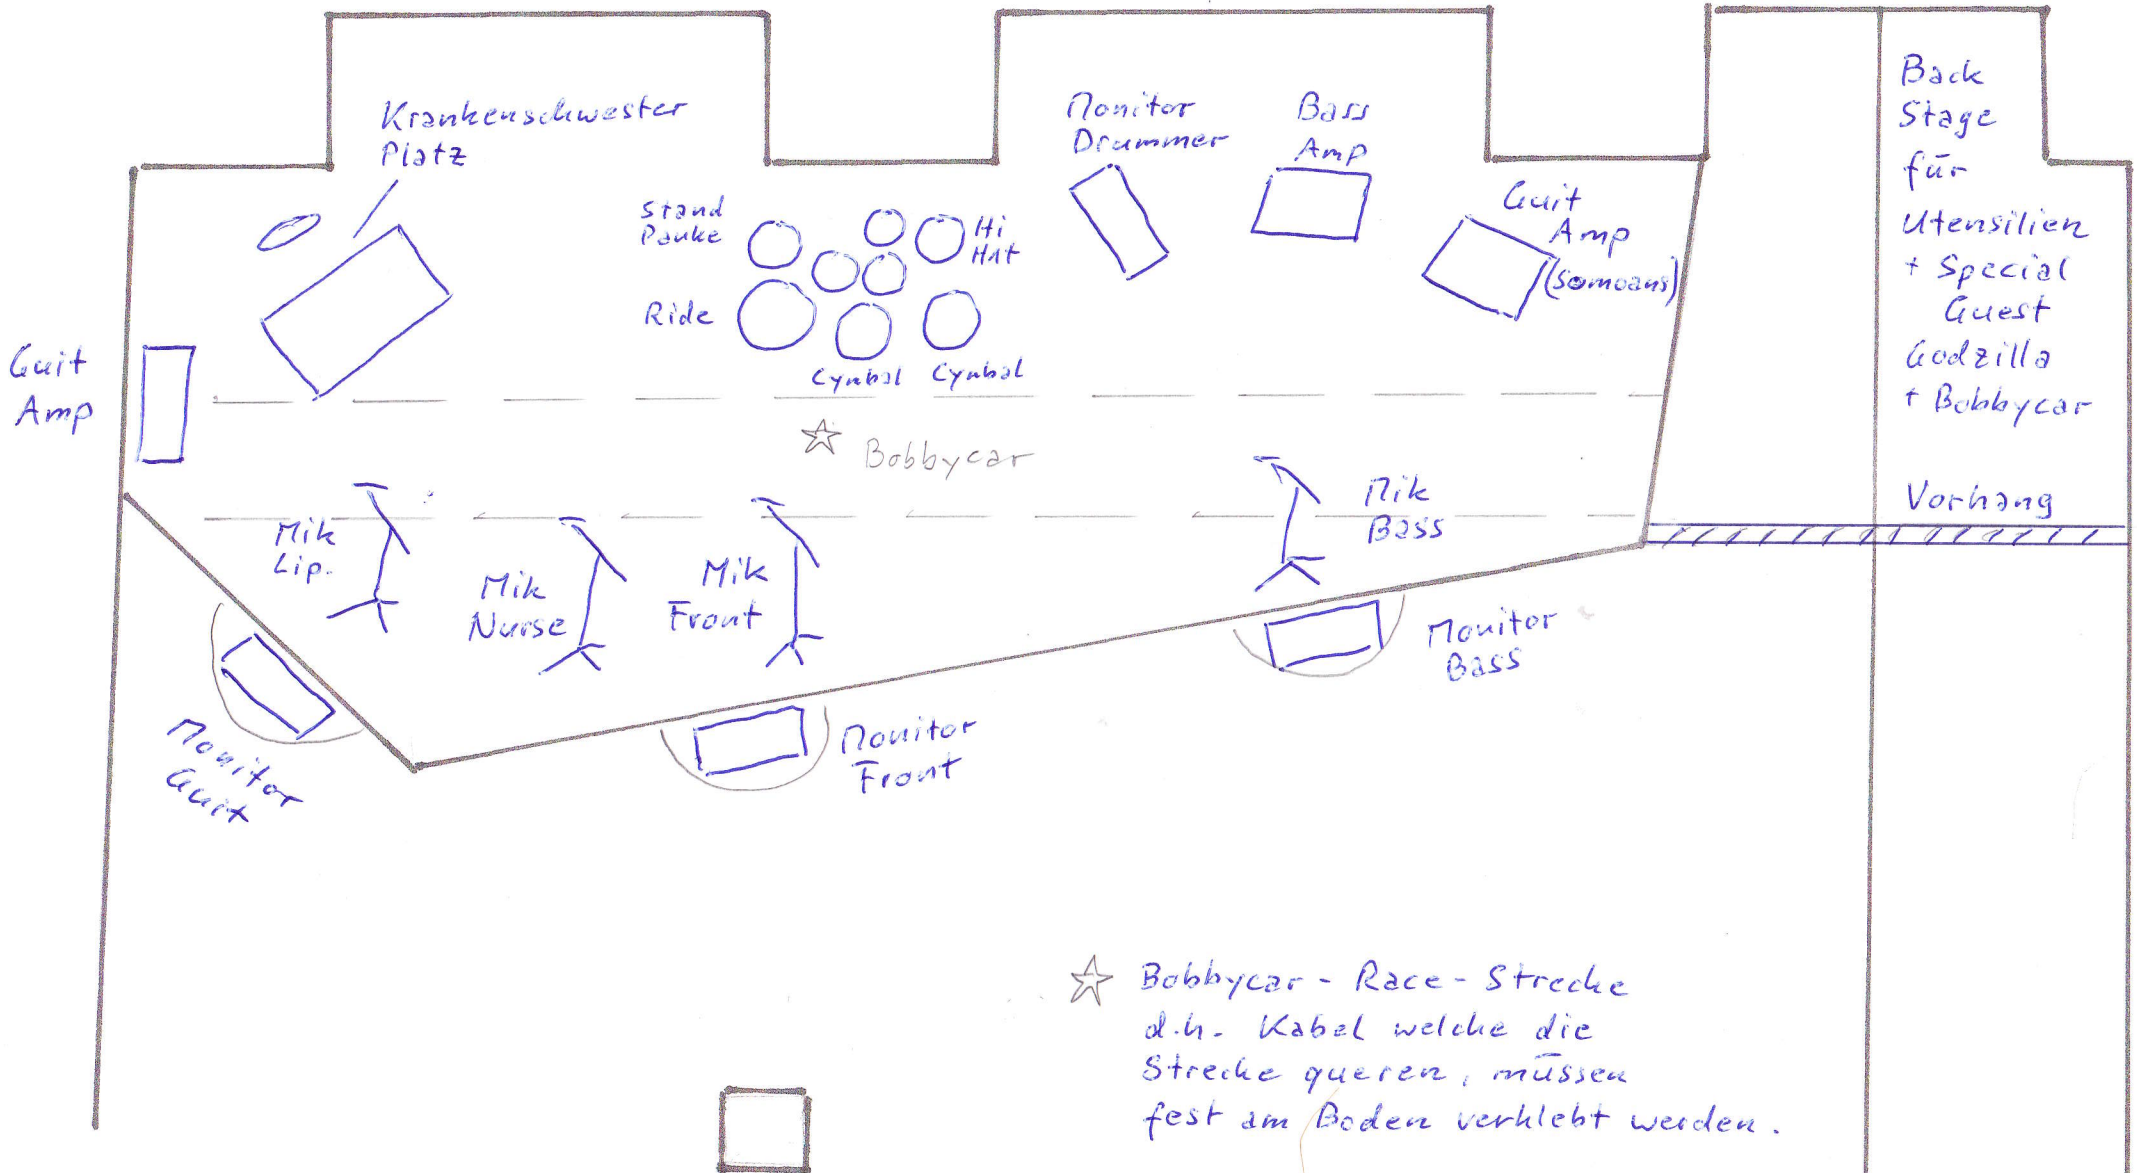 Krankenschwester
Platz
Monitor
Drummer
Bass
Amp
Guit
Amp
(Somoans)
Back
Stage
für
Utensilien
+ Special
Guest
Godzilla
+ Bobbycar
Vorhang
Stand
Pauke
Hi
Hat
Ride
Cymbal
Cymbal
Guit
Amp
Bobbycar
Mik
Lip.
Mik
Nurse
Mik
Front
Mik
Bass
Monitor
Guit
Monitor
Front
Monitor
Bass
Bobbycar - Race - Strecke
d.h. Kabel welche die
Strecke queren, müssen
fest am Boden verklebt werden.